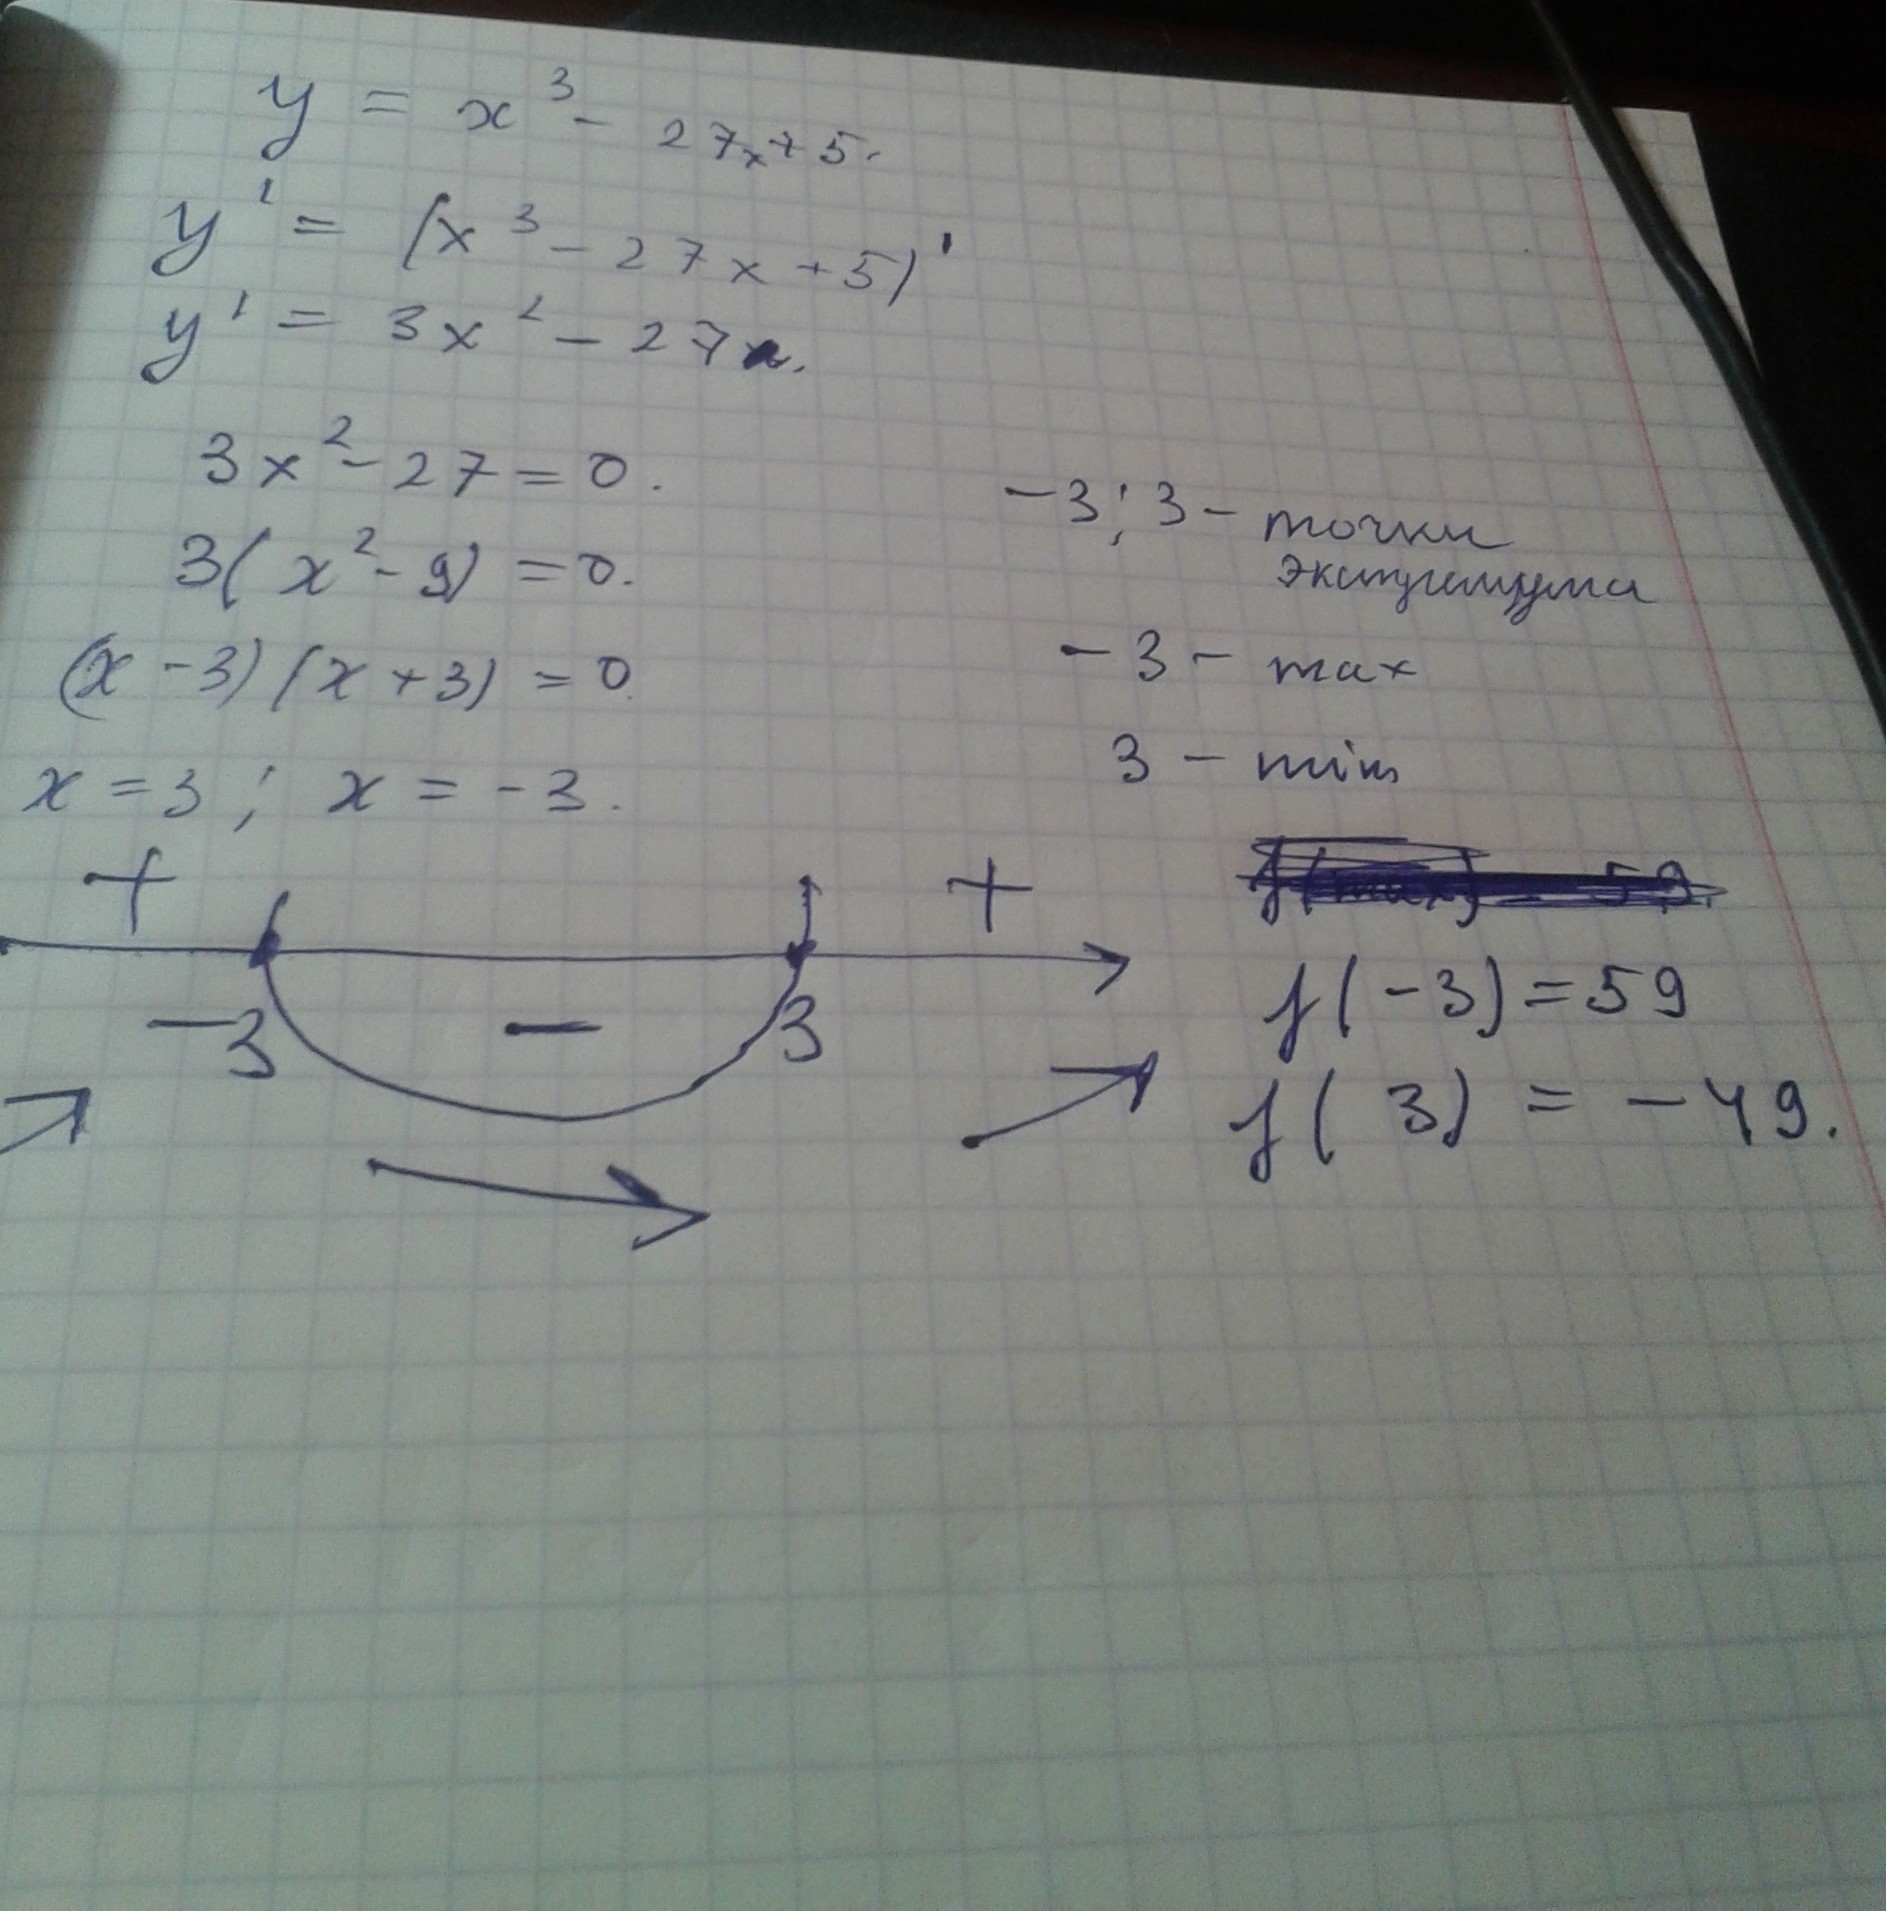 y = x³ - 27x + 5.
y' = (x³ - 27x + 5)'
y' = 3x² - 27.
3x² - 27 = 0.
3(x² - 9) = 0.
(x - 3)(x + 3) = 0.
x = 3; x = -3.
+ - +
-3 3
-3; 3 - точки
экстремума
-3 - max
3 - min
f(-3) = 59
f( 3) = -49.